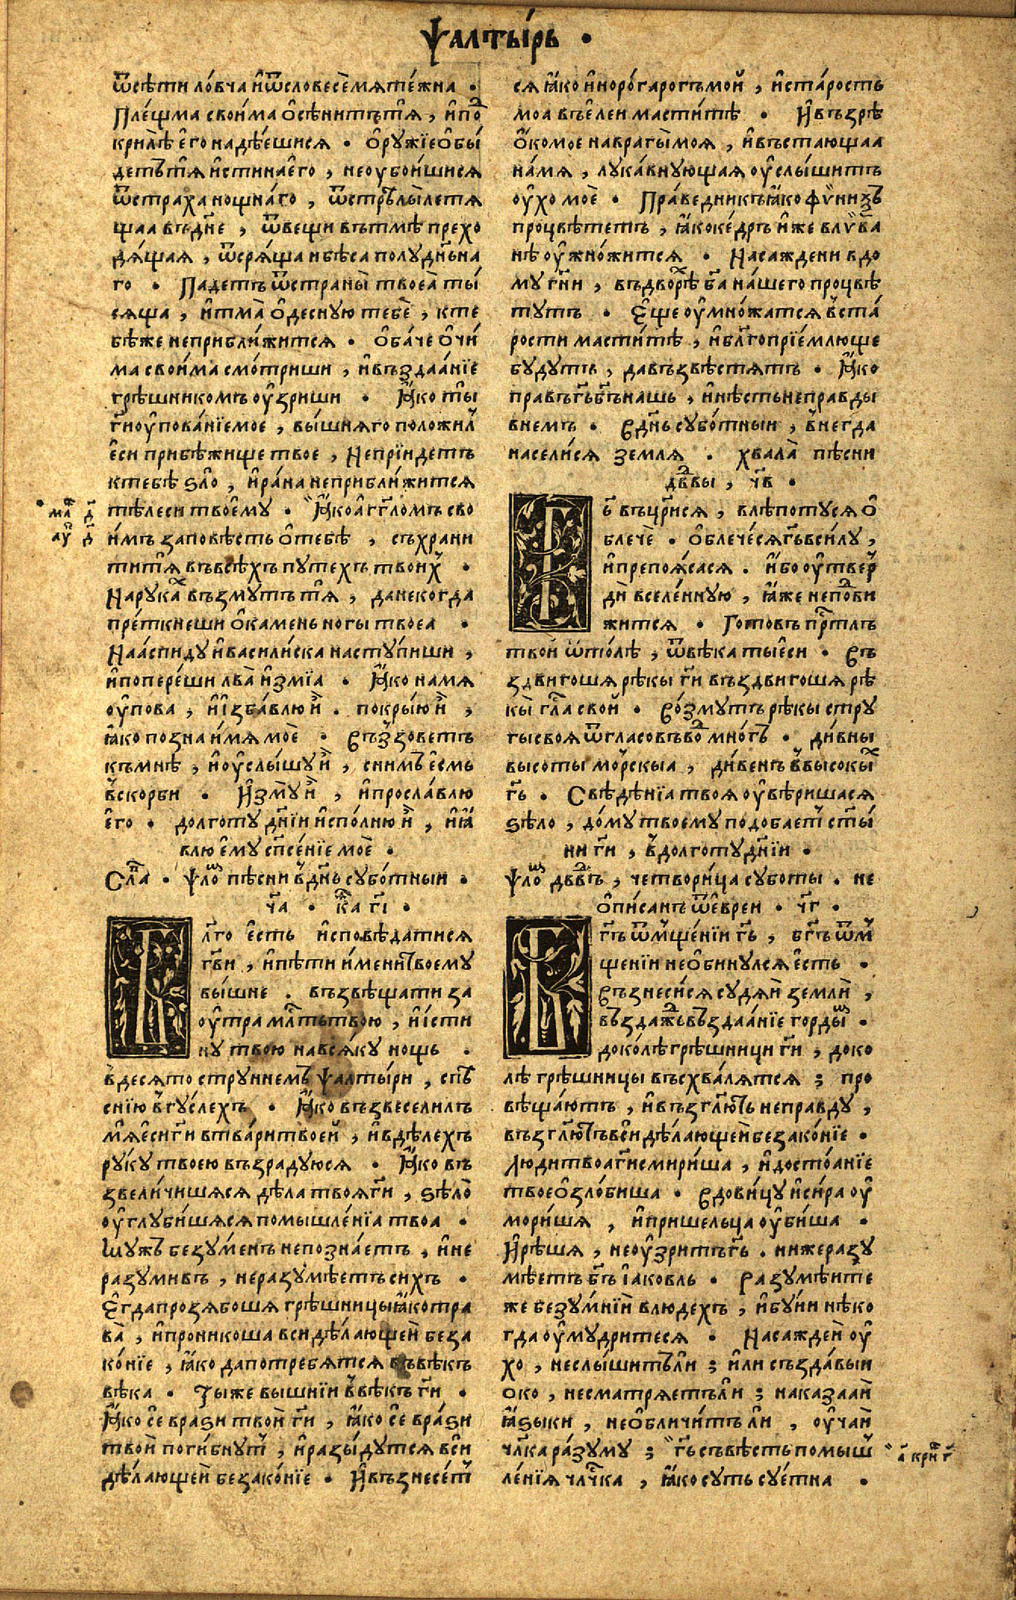 Ѱалты́рь •
ѿсѣти ло́вча и҆ѿсловесѐ мяте́жна •
Пле́щма своима ѻ҆сѣни́тътѧ , и҆по
крилѣ̀ е҆го̀ надѣ́ешисѧ • ѻ҆ру́жїе ѻ҆бы́
детътѧ и҆стинаего̀ , неоубои́шисѧ
ѿстраха нощна́го , ѿстрѣлы̀ летѧ
щаа въдн҃е , ѿвещи вътмѣ̀ прехо
дѧ́щаѧ , ѿсрѧ́ща и҆бѣ́са полу́дньна
го • Паде́тъ ѿстраны̀ твоеа̀ ты́
сѧща , и҆тма̀ ѻ҆десную тебѐ , кте
бѣ́же неприбли́житсѧ • ѻ҆ба́че ѻ҆чи́
ма свои́ма смо́триши , и҆въздаа́нїе
грѣ́шникомъ оу҆́зриши • Ꙗ҆́ко ты̀
гн҃и оу҆пова́нїе мое , вы́шнѧго положил
е҆си прибѣ́жище твое , Неприи́детъ
ктебѣ̀ ѕло̀ , и҆ра́на неприбли́житсѧ
тѣлеси твоему̀ • Ꙗ҆́ко а҆гг҃ломъ сво
и́мъ заповѣ́сть ѻ҆тебѣ̀ , съхрани
титѧ въвсѣ́хъ путехъ твои́х •
На рука́х въ́змутъ тѧ , да некогда
пре́ткнеши ѻ҆камень ногы твоеа •
На а҆́спиду и҆васили́ска насту́пиши ,
и҆попере́ши лва̀ и҆ змїа • Ꙗ҆́ко на мѧ
оу҆пова , и҆ и҆зба́влю и҆̀ . покры́ю и҆̀ ,
ꙗ҆́ко позна и҆́мѧ моѐ • Въззовет̾ъ
къмнѣ̀ , и҆ оу҆слы́шу и҆̀ , сни́мъ е҆смь
в҆скорби • И҆зму̀ и҆̀ , и҆просла́влю
е҆го̀ • долготу дн҃їи и҆спо́лню и҆̀ , и҆ ꙗ҆
влю е҆му сп҃се́нїе моѐ •
Сла҃ • Ѱло́м пѣсни в҆дн҃ь субо́тныи •
ч҃а • к҃а г҃і •
Бл҃го е҆́сть и҆сповѣ́датисѧ
гв҃и , и҆пѣ́ти и҆́мени твоему
вы́шне . възвѣща́ти за
оу҆тра мл҃тьтвою , и҆и҆́сти
ну твою на всѧ́ку нощь •
в҆десѧто струннемъ Ѱалты́ри , съпѣ
снїю в҆гу́слехъ • Ꙗ҆́ко възвеселилъ
мѧ́ е҆сигн҃и втва́ри твоей , и҆вдѣ́лехъ
ру́ку твоею възрадуюсѧ • Ꙗ҆́ко въ
звели́чишѧсѧ дѣла твоѧгн҃и , ѕѣлѡ̀
оу҆глуби́шѧсѧ помышле́нїа твоа •
Мужъ безу́менъ непозна́етъ , и҆не
разуми́въ , неразумѣ́етъ си́хъ •
Е҆гда прозѧбошѧ грѣ́шницы ꙗ҆́ко тра
ва̀ , и҆проникоша вси дѣ́лающеи беза
ко́нїе , ꙗ҆́ко да потребѧ́тсѧ въвѣ́къ
вѣка • Ты же вы́шнїи в҆вѣ́къ гн҃и •
Ꙗ҆́ко сѐ вразѝ твои гн҃и , ꙗ҆́ко сѐ вра́ѕи
твои поги́бнут , и҆разы́дутсѧ вси
дѣ́лающеи безако́нїе • И҆възнесе́т
сѧ ꙗ҆́ко и҆норо́га рогъ мой , и҆ста́рость
моа въе҆леи масти́тѣ • И҆възрѣ̀
ѻ҆́ко мое наврагы̀ моѧ , и҆въстающаа
на́мѧ , лука́внующаѧ оу҆слы́шитъ
оу҆́хо моѐ • Пра́ведникъ ꙗ҆́ко фѵ́низъ
процвѣте́тъ , ꙗ҆́ко ке́дръ и҆́же влѵ́ва
нѣ оу҆жно́житсѧ • Насаждени вдо
му гн҃и , въдворѣ́х б҃а на́шего процвѣ
ту́тъ • Е҆ще оу҆мно́жатсѧ в҆ста́
рости масти́тѣ , и҆бл҃гоприе́млюще
бу́дуть , да възвѣ́стѧтъ • Ꙗ҆́ко
правъ гь҃ бг҃ъ нашь , и҆нѣ́сть неправды
внемъ • Вдн҃ь субо́тныи , в҆негда
населисѧ землѧ . хвала̀ пѣсни
дв҃двы , ч҃в •
Гь҃ въцр҃исѧ , влѣ́поту сѧ ѻ҆
блечѐ • ѻ҆блече́сѧ гь҃ всилу ,
и҆препоꙗ́сасѧ • и҆́бо оу҆твер
ди вселе́нную , ꙗ҆́же непо́дви
житсѧ • Гото́въ пр҃тлъ
твой ѿто́лѣ , ѿвѣка ты е҆си • Въ
здвигошѧ рѣ́кы гн҃и въздвигошѧ рѣ́
кы̀ гл҃а своѝ • Во́змутъ рѣ́кы стру
гы своѧ ѿгласовъ вод мно́гъ • ди́вны
высоты̀ морскыа , ди́венъ ввысокы́х
гь҃ • Свѣдѣ́нїа твоѧ оу҆вѣришасѧ
ѕѣло , до́му твоему подобает ст҃ы́
ни гн҃и , в҆долготу дн҃їи •
Ѱло́м дв҃двъ , четвори́ца субо́ты • не
ѻ҆пи́санъ ѿе҆вреи • ч҃г •
Бг҃ъ ѿмще́нїи гь҃ , бг҃ъ ѿм
щенїи неѻбинулсѧ е҆сть •
Възнеси́сѧ судѧ́й земли ,
въздаждь въздаа́нїе го́рдым •
доко́лѣ грѣ́шници гн҃и , доко
лѣ грѣ́шницы въсхва́лѧтсѧ ; про
вѣща́ютъ , и҆възгл҃ють неправду ,
възгл҃ютъ вси дѣ́лающеи безако́нїе •
Люди твоа гн҃и смири́ша , и҆досто́анїе
твое ѻ҆зло́биша • Вдови́цу и҆ си́ра оу҆
мориша , и҆прише́льца оу҆би́ша •
И҆рѣ́шѧ , неоу҆́зритъ гь҃ . ниже разу
мѣетъ бг҃ъ і҆а́ковль • Разумѣ́ите
же безу́мнїи влюдехъ , и҆бу́ии нѣко
гда оу҆мудри́тесѧ • Насажде́и оу҆́
хо , неслы́шитъ ли ; и҆ли създа́выи
ѻ́ко , несматрѧ́етъ ли ; наказа́ай
ꙗ҆зыки , неѻбличи́тъ ли , оу҆ча́й
чл҃ка ра́зуму ; гь҃ съвѣ́сть помыш
ле́нїѧ чл҃чка , ꙗ҆́ко суть суе́тна •